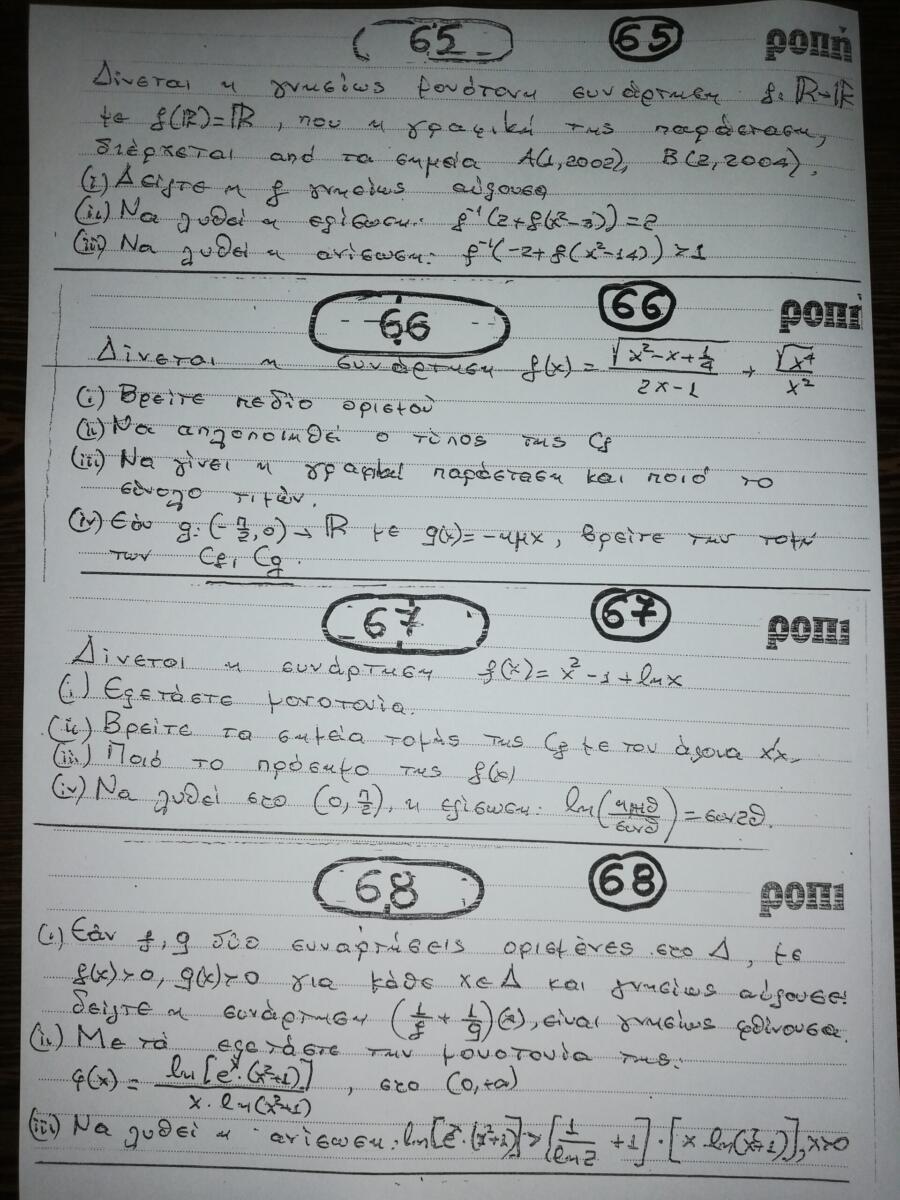 65 65 ροπή
Δίνεται η γνησίως μονότονη συνάρτηση f: ℝ→ℝ
με f(ℝ)=ℝ, που η γραφική της παράσταση,
διέρχεται από τα σημεία A(1,2002), B(2,2004).
(i) Δείξτε η f γνησίως αύξουσα
(ii) Να λυθεί η εξίσωση: f⁻¹(2+f(x²-3))=2
(iii) Να λυθεί η ανίσωση: f⁻¹(-2+f(x²-14))>1
66 66 ροπή
Δίνεται η συνάρτηση f(x) = √(x²-x+1/4)/(2x-1) + √x⁴/x²
(i) Βρείτε πεδίο ορισμού
(ii) Να απλοποιηθεί ο τύπος της Cf
(iii) Να γίνει η γραφική παράσταση και ποιό το
σύνολο τιμών.
(iv) Εάν g: (-π/2,0)→ℝ με g(x)=-ημx, βρείτε την τομή
των Cf, Cg.
67 67 ροπι
Δίνεται η συνάρτηση f(x)= x²-1+lnx
(i) Εξετάστε μονοτονία.
(ii) Βρείτε τα σημεία τομής της Cf με τον άξονα x'x.
(iii) Ποιό το πρόσημο της f(x)
(iv) Να λυθεί στο (0,π/2), η εξίσωση: ln(ημθ/συνθ)=συν2θ.
68 68 ροπι
(i) Εάν f,g δύο συναρτήσεις ορισμένες στο Δ, με
f(x)>0, g(x)>0 για κάθε x∈Δ και γνησίως αύξουσες
δείξτε η συνάρτηση (1/f + 1/g)(x), είναι γνησίως φθίνουσα.
(ii) Μετά εξετάστε την μονοτονία της:
φ(x) = ln[eˣ·(x²+1)]/(x·ln(x²+1)), στο (0,+∞)
(iii) Να λυθεί η ανίσωση: ln[eˣ·(x²+1)]>[1/ln2 +1]·[x·ln(x²+1)], x>0